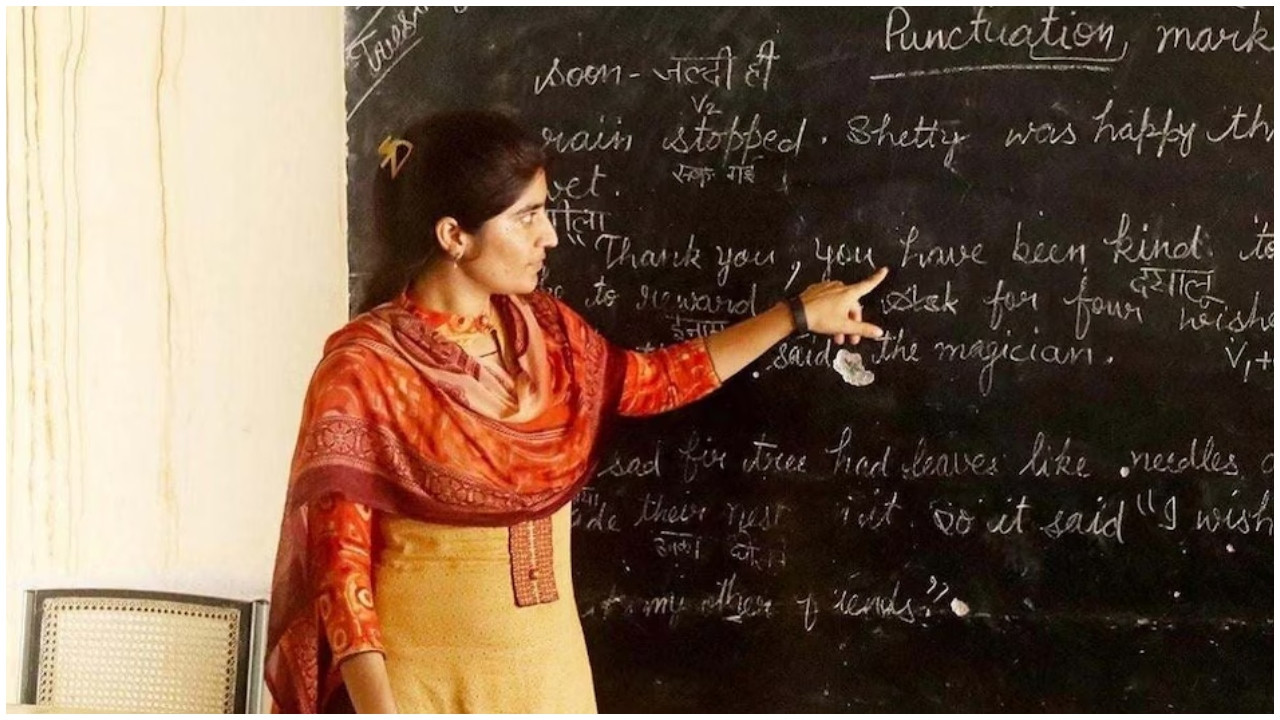 Punctuation mark
soon - जल्दी ही
V2
rain stopped. Shetty was happy th
रूक गई
wet.
गीला
"Thank you, you have been kind to
दयालू
to reward Ask for four wishe
इनाम
said the magician. V1+
sad fir tree had leaves like needles
their nest it. So it said "I wish
उनका
my other friends".